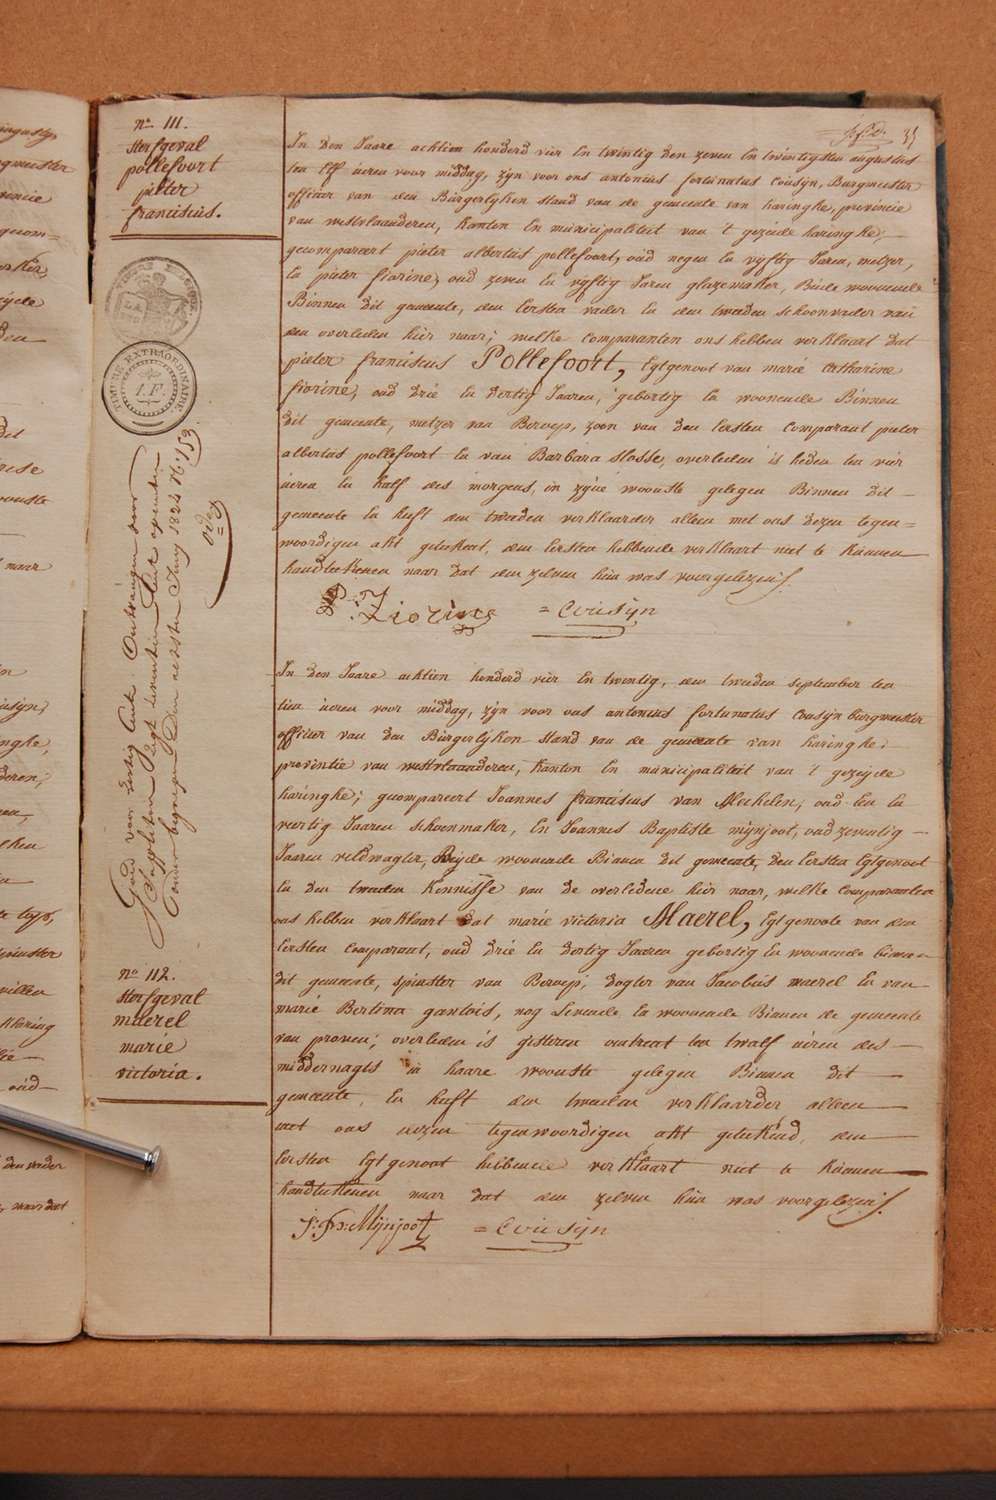 35
n.o 111.
sterfgeval
pollefoort
pieter
franciscus.
In den Jaare achtien honderd vier En twintig den zeven En twintigsten augustus
ten Elf uren voor middag, zijn voor ons antonius fortunatus Cousijn, Burgmeester
officier van den Burgerlijken stand van de gemeente van haringhe, provincie
van westvlaanderen, kanton En municipaliteit van 't gezeide haringhe,
gecompareert pieter albertus pollefoort, oud negen En vijftig Jaren, metzer,
En pieter fiorine, oud zeven En vijftig Jaren glazemaker, Beide woonende
Binnen dit gemeente, den Eersten vader En den tweeden schoonvader van
den overleden hier naar; welke comparanten ons hebben verklaart dat
pieter franciscus Pollefoort, Egtgenoot van marie Catharine
fiorine, oud drie En dertig Jaaren, geboortig En woonende Binnen
dit gemeente, metzer van Beroep, zoon van den Eersten comparant pieter
albertus pollefoort En van Barbara slosse, overleden is heden ten vier
uren En half des morgens, in zijne woonste gelegen Binnen dit
gemeente En heeft den tweeden verklaarder alleen met ons dezen tegen=
woordigen akt geteekent, den Eersten hebbende verklaart niet te kunnen
handteekenen naar dat den zelven hun was voorgelezen.
P: Fiorine = Cousijn
TIMBRE EXTRAORDINAIRE
I.F.
Goed voor dertig Cents. Ontvangen door
den agtsten Juny 1824 N.o 153.
In den Jaare achtien honderd vier En twintig, den tweeden september ten
tien uren voor middag, zijn voor ons antonius fortunatus cousijn burgmeester
officier van den Burgerlijken stand van de gemeente van haringhe,
provintie van westvlaanderen, kanton En municipaliteit van 't gezeijde
haringhe; gecompareert Joannes franciscus van Mechelen, oud En
veertig Jaaren schoenmaker, En Joannes Baptiste mijnjoot, oud zeventig
Jaaren veldwagter, Beijde woonende Binnen dit gemeente, den Eersten Egtgenoot
En den tweeden kennisse van de overledene hier naar, welke comparanten
ons hebben verklaart dat marie victoria Maerel, Egtgenoote van den
Eersten comparant, oud drie En dertig Jaaren geboortig En woonende binnen
dit gemeente, spinster van Beroep, dogter van Jacobus maerel En van
marie Bertina gantois, nog Levende En woonende Binnen de gemeente
van proven; overleden is gisteren omtrent ten twalf uren des
middernagts in haare woonste gelegen Binnen dit
gemeente, En heeft den tweeden verklaarder alleen
met ons dezen tegenwoordigen akt geteekend, den
Eersten Egtgenoot hebbende verklaart niet te kunnen
handteekenen naar dat den zelven hun was voorgelezen.
J: B: Mijnjoot = Cousijn
n.o 112.
sterfgeval
maerel
marie
victoria.